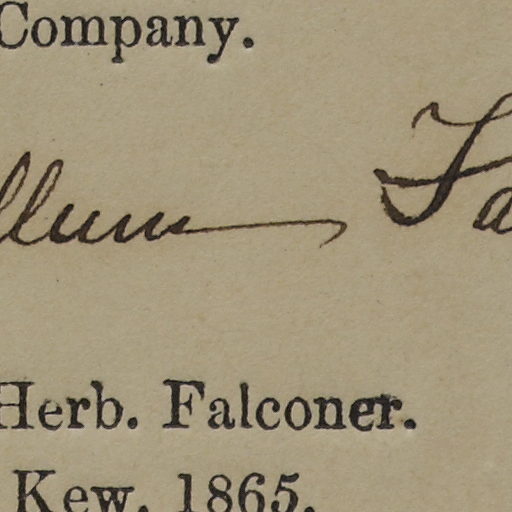 Company.
llum Fa
Herb. Falconer.
Kew. 1865.